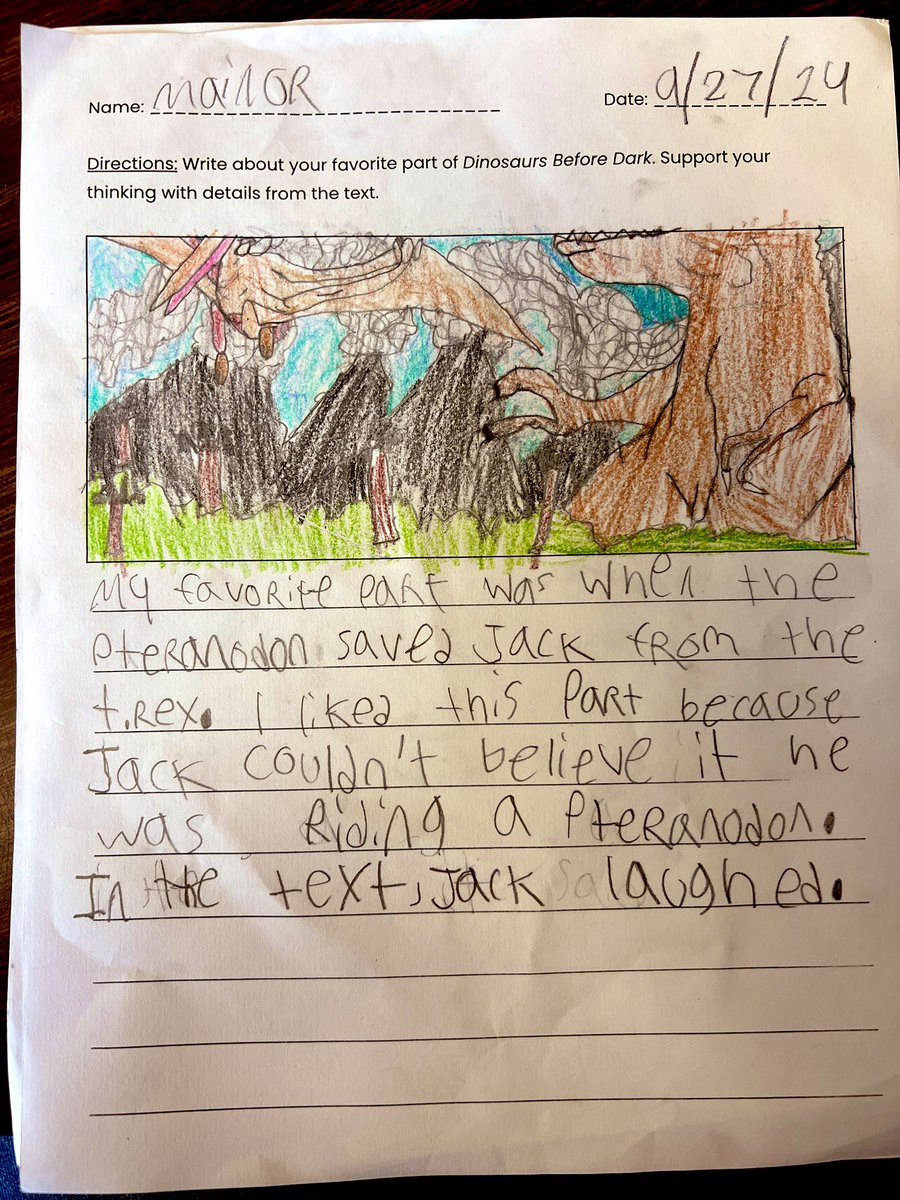 Name: mailor Date: 9/27/24
Directions: Write about your favorite part of Dinosaurs Before Dark. Support your
thinking with details from the text.
My favorite part was when the
pteranodon saved Jack from the
t.rex. I liked this part because
Jack couldn't believe it he
was riding a pteranodon.
In the text, Jack laughed.